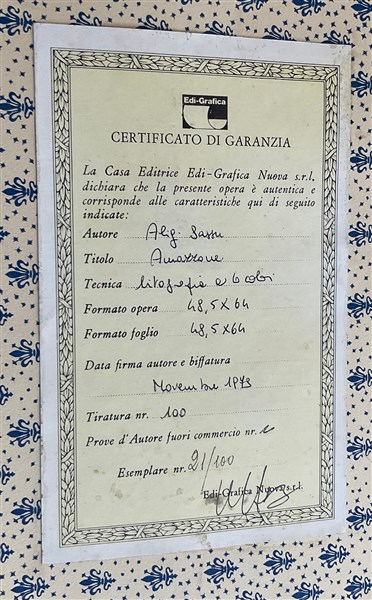 Edi-Grafica
CERTIFICATO DI GARANZIA
La Casa Editrice Edi-Grafica Nuova s.r.l.
dichiara che la presente opera è autentica e
corrisponde alle caratteristiche qui di seguito
indicate:
Autore Alig. Sassu
Titolo Amazzone
Tecnica litografia a 6 colori
Formato opera 48,5x64
Formato foglio 48,5x64
Data firma autore e biffatura
Novembre 1973
Tiratura nr. 100
Prove d'Autore fuori commercio nr.
Esemplare nr. 21/100
Edi-Grafica Nuova s.r.l.